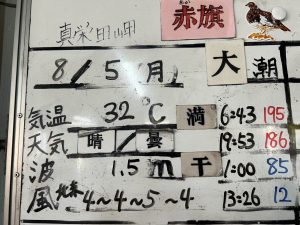 真栄田岬 赤旗
8/5(月) 大潮
気温 32℃ 満 6:43 195
天気 晴/曇 19:53 186
波 1.5m 干 1:00 85
風 北東 4~4~5~4 13:26 12